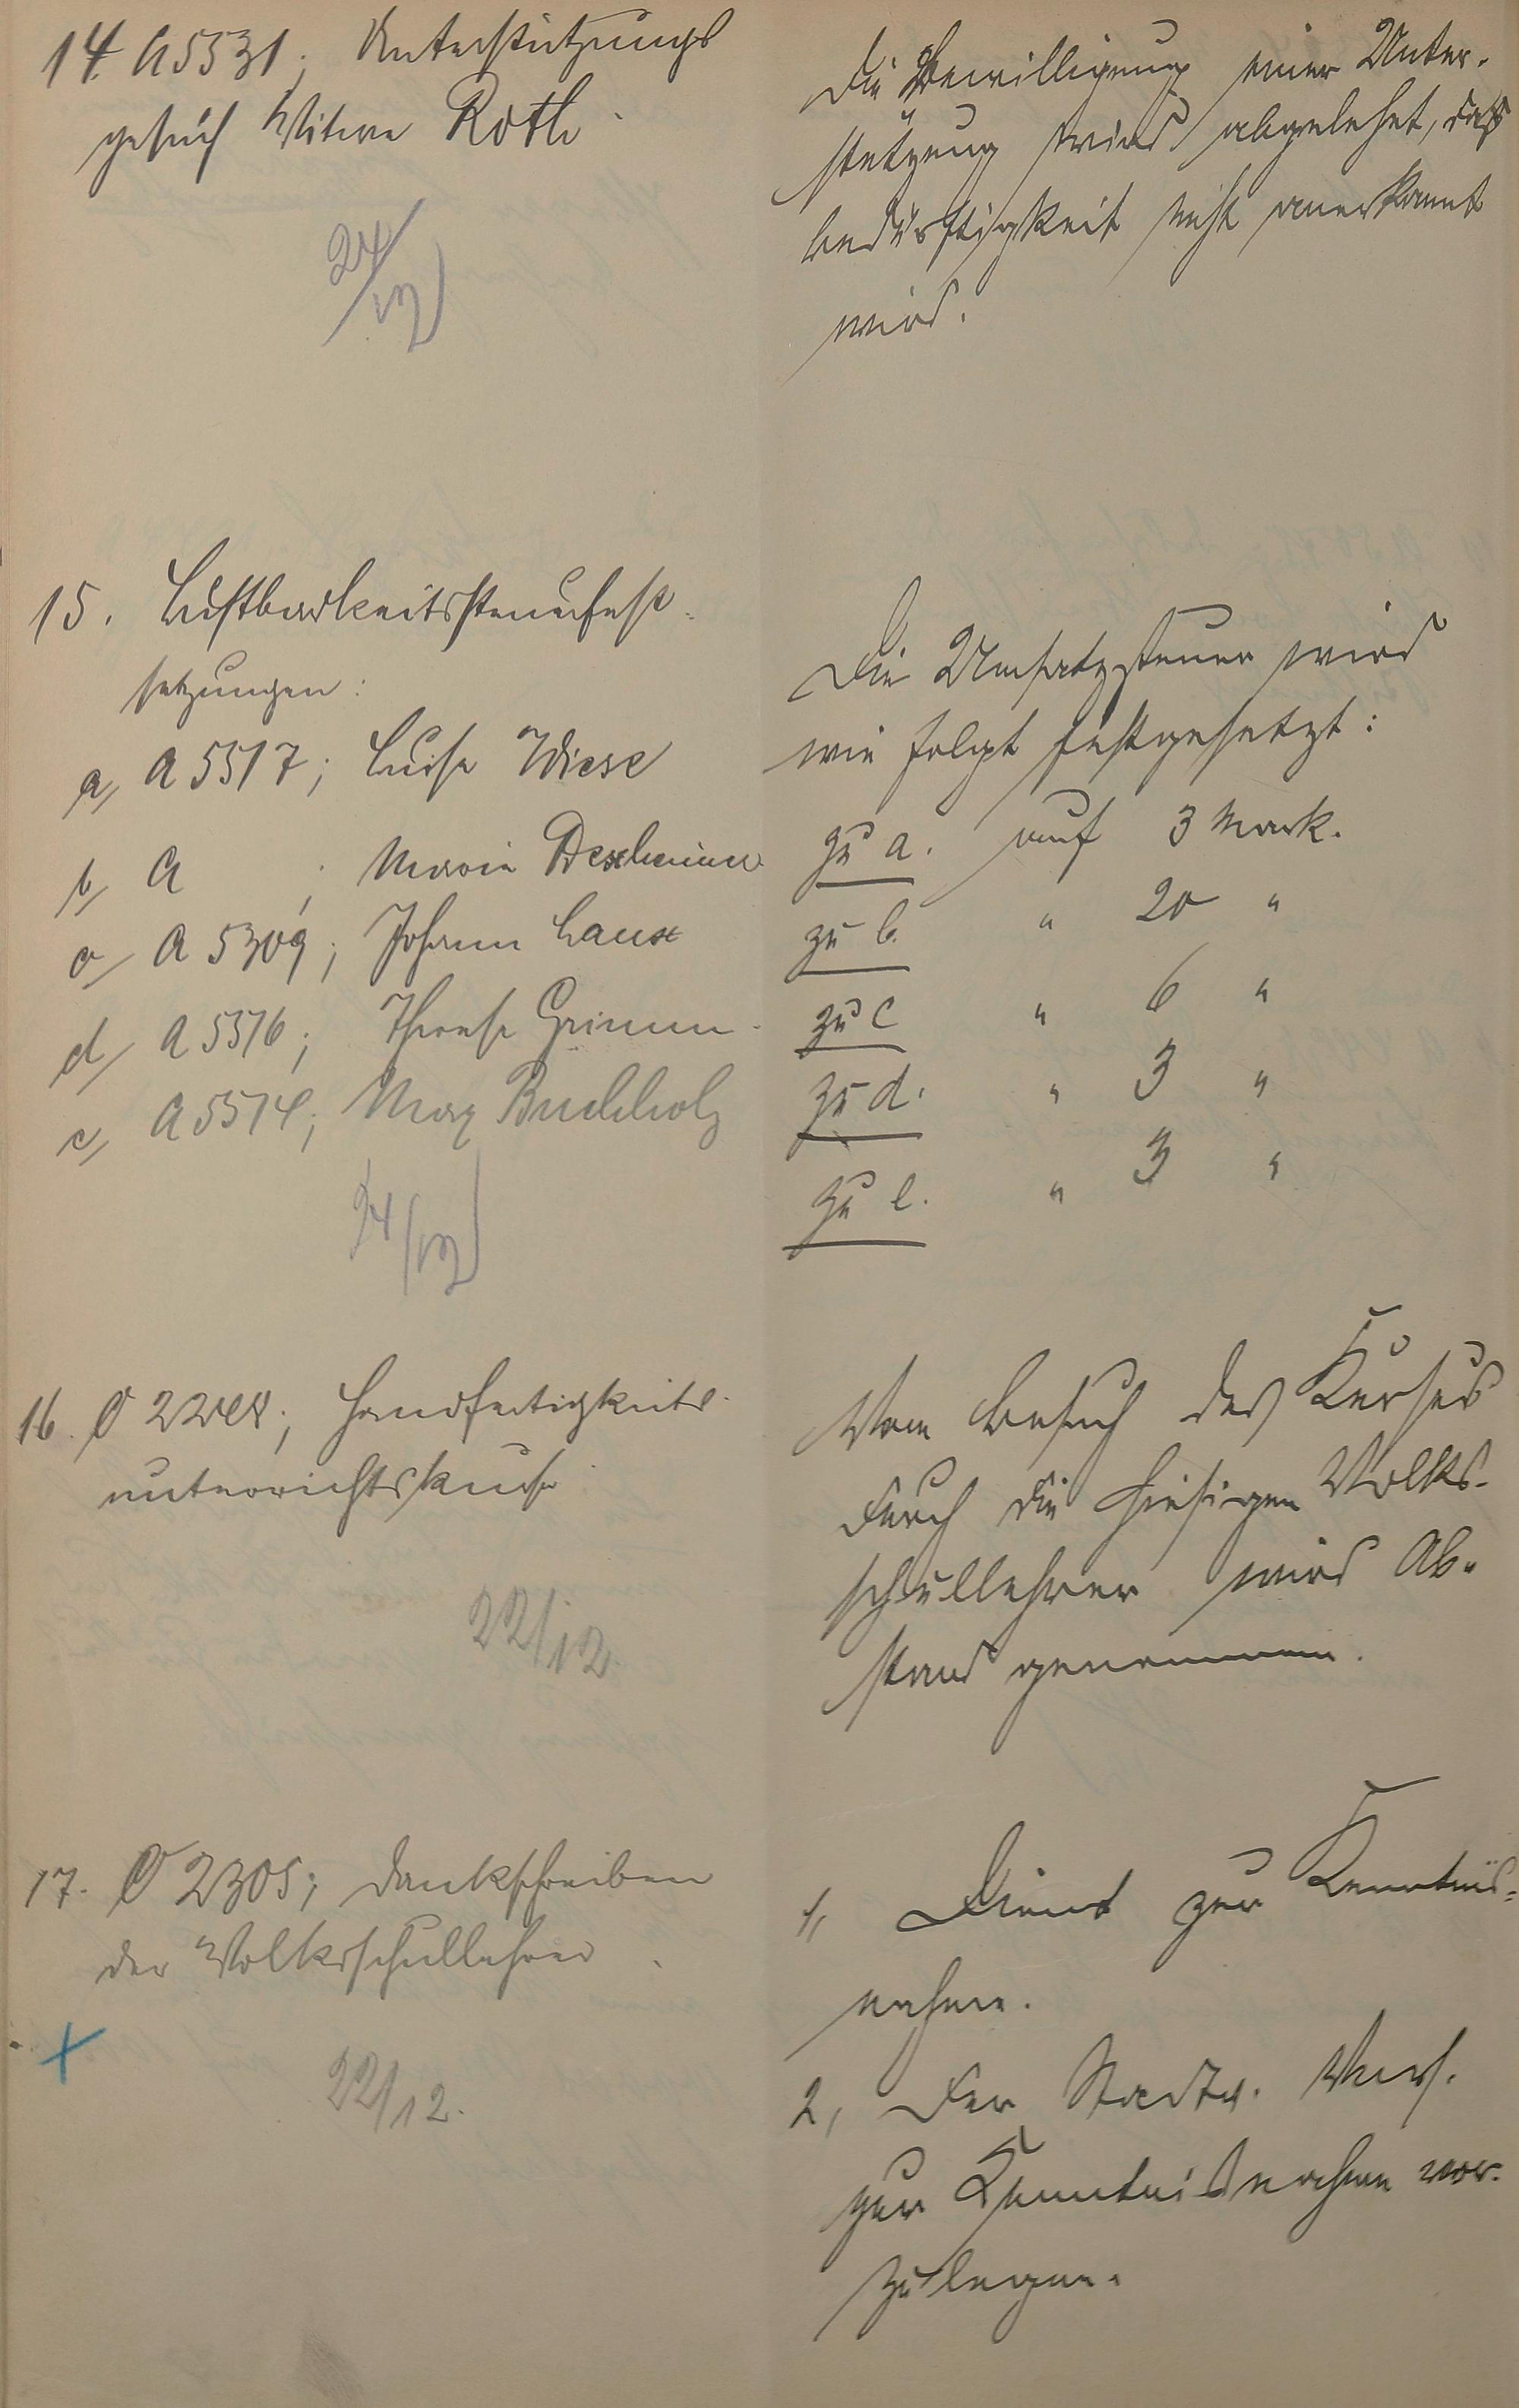 14. A 5531; Unterstützungs
gesuch Witwe Roth.
24/12
Die Bewilligung einer Unter-
stützung wird abgelehnt, da
bedürftigkeit nicht anerkannt
wird.
15. Lustbarkeitssteuerfest-
setzungen:
a, A 5517; Luise Wiese
b, A ; Marie Dexheimer
c, A 5309; Johann Laux
d, A 5576; Therese Grimm
e, A 5574; Max Buchholz
24/12
Die Umsatzsteuer wird
wie folgt festgesetzt:
zu a. auf 3 Mark.
zu b. " 20 "
zu c " 6 "
zu d. " 3 "
zu e. " 3 "
16. O; Handfertigkeits-
unterrichtskurse
22/12.
Vom Besuch des Kursus
durch die hiesigen Volks-
schullehrer wird Ab-
stand genommen.
17. O 2305; Dankschreiben
der Volksschullehrer.
22/12.
1, Dient zur Kenntnis-
nahme.
2, Der Stadtv. Vers.
zur Kenntnisnahme vor-
zulegen.